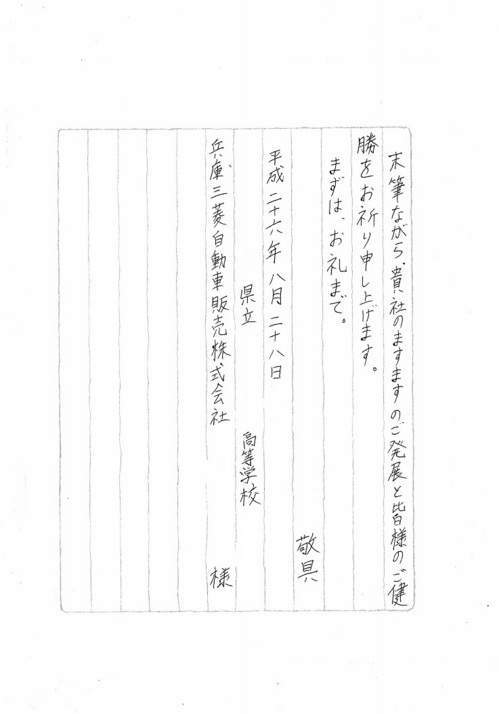 末筆ながら、貴社のますますのご発展と皆様のご健
勝をお祈り申し上げます。
まずは、お礼まで。
敬具
平成二十六年八月二十八日
県立 高等学校
兵庫三菱自動車販売株式会社 様